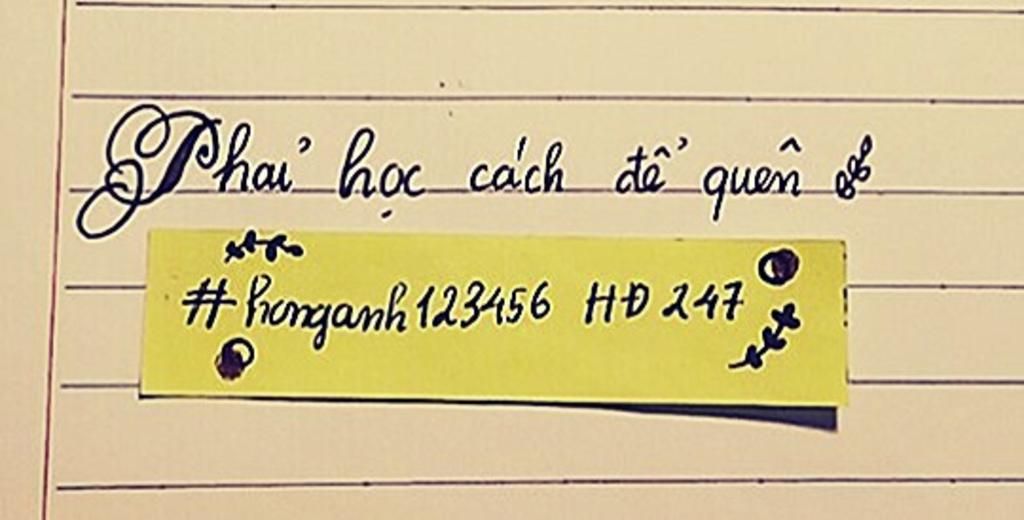 Phải học cách để quên
#honganh123456 HĐ 247